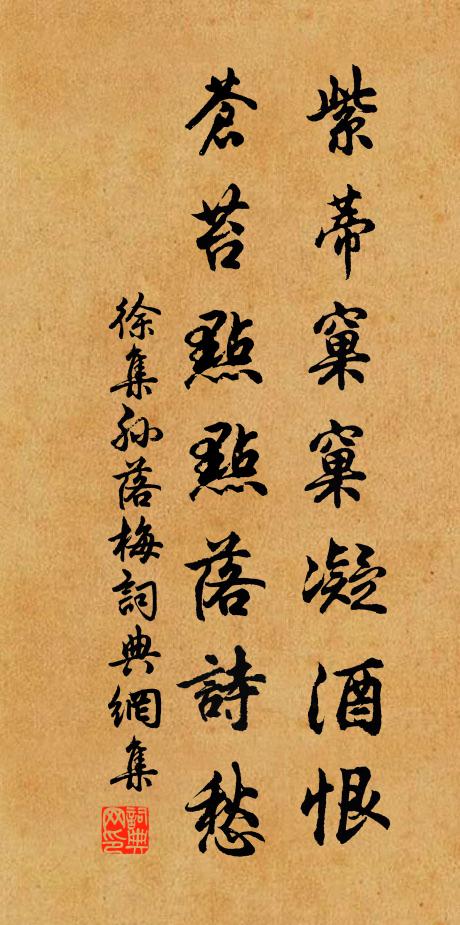 紫蒂窠窠凝酒恨
蒼苔點點落詩愁
徐集孙落梅詞典網集
詞典網印